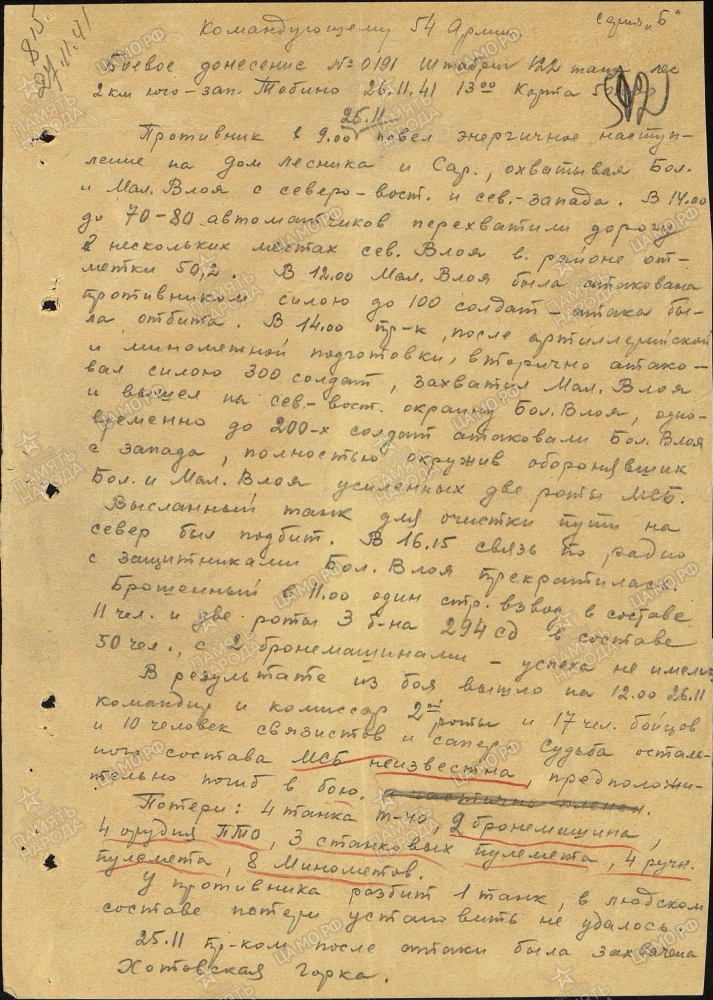 серия "Б"
815
27.11.41
Командующему 54 Армии
Боевое донесение №0191 Штабриг 122 танк. лес
2 км юго-зап. Тобино 26.11.41 13⁰⁰ Карта 50000
25.11
Противник в 9.00 повел энергичное наступ-
ление на дом лесника и Сар., охватывая Бол.
и Мал. Влоя с северо-вост. и сев.-запада. В 14.00
до 70-80 автоматчиков перехватили дорогу
в нескольких местах сев. Влоя в районе от-
метки 50,2. В 12.00 Мал. Влоя была атакована
противником силою до 100 солдат - атака бы-
ла отбита. В 14.00 пр-к, после артиллерийской
и минометной подготовки, вторично атако-
вал силою 300 солдат, захватил Мал. Влоя
и вышел на сев.-вост. окраину Бол. Влоя, одно-
временно до 200-х солдат атаковали Бол. Влоя
с запада, полностью окружив оборонявших
Бол. и Мал. Влоя усиленных две роты МСБ.
Высланный танк для очистки пути на
север был подбит. В 16.15 связь по радио
с защитниками Бол. Влоя прекратилась.
Брошенный в 11.00 один стр. взвод в составе
11 чел. и две роты 3 б-на 294 сд в составе
50 чел., с 2 бронемашинами - успеха не имели.
В результате из боя вышло на 12.00 26.11
командир и комиссар 2ой роты и 17 чел. бойцов
и 10 человек связистов и сапер. Судьба осталь-
ного состава МСБ неизвестна, предположи-
тельно погиб в бою. а частично пленен.
Потери: 4 танка Т-40, 2 бронемашина,
4 орудия ПТО, 3 станковых пулемета, 4 ручн.
пулемета, 8 Минометов.
У противника разбит 1 танк, в людском
составе потери установить не удалось.
25.11 пр-ком после атаки была захвачена
Хотовская горка.
ПАМЯТЬ НАРОДА
ЦАМО.РФ